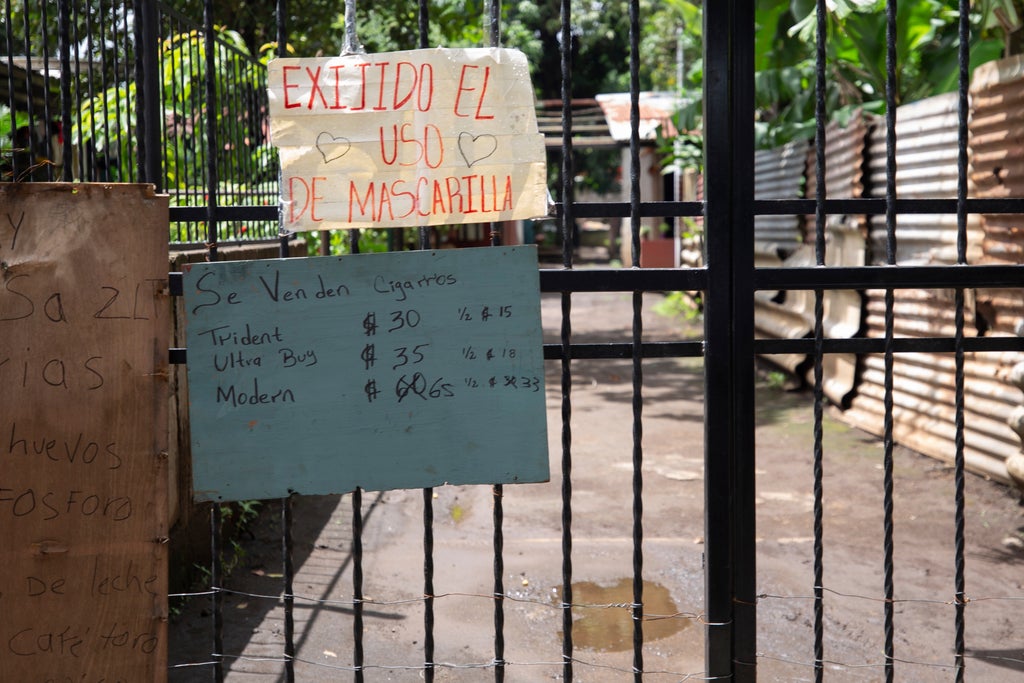 EXIJIDO EL
USO
DE MASCARILLA
Se Venden Cigarros
Trident ₡ 30 1/2 ₡ 15
Ultra Buy ₡ 35 1/2 ₡ 18
Modern ₡ 65 1/2 ₡ 33
y
Sa
huevos
FOSFORO
De leche
café toro